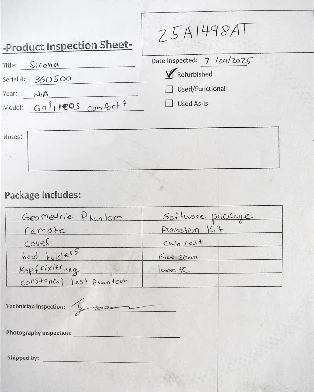 25A1498AT
-Product Inspection Sheet-
Title: Sirona
Serial #: 360500
Year: N/A
Model: Galileos comfort +
Date Inspected: 7 / /2025
Refurbished
Used/Functional
Used As-is
Notes:
Package Includes:
Geometric Phantom
Software package
remote
Promotion Kit
cover
Chin rest
head
constancy test Phantom
Technician Inspection:
Photography Inspection:
Shipped by: